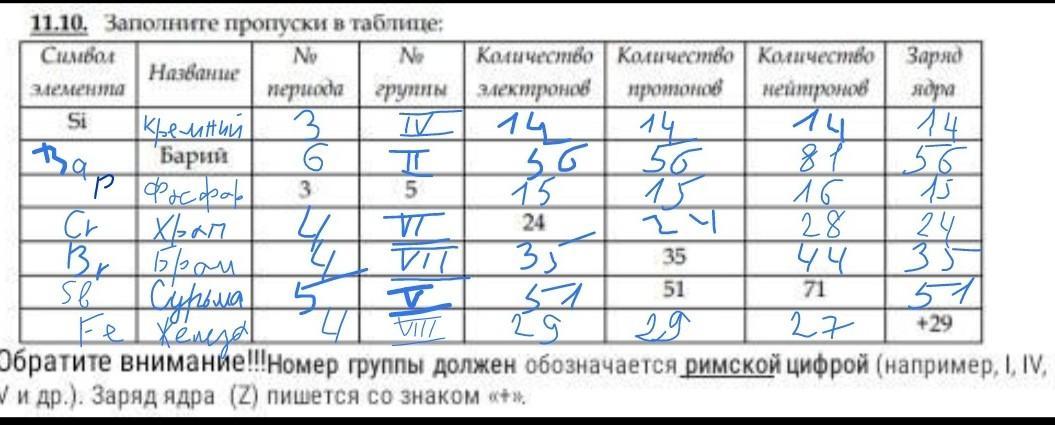 11.10. Заполните пропуски в таблице:
Символ элемента Название № периода № группы Количество электронов Количество протонов Количество нейтронов Заряд ядра
Si кремний 3 IV 14 14 14 14
Ba Барий 6 II 56 56 81 56
P Фосфор 3 5 15 15 16 15
Cr Хром 4 VI 24 24 28 24
Br Бром 4 VII 35 35 44 35
Sb Сурьма 5 V 51 51 71 51
Fe 4 VIII 29 29 27 +29
Обратите внимание!!!Номер группы должен обозначается римской цифрой (например, I, IV,
V и др.). Заряд ядра (Z) пишется со знаком «+».